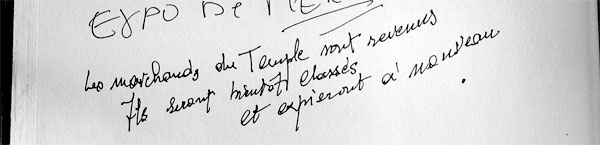 EXPO DE
Les marchands du Temple sont revenus
Ils seront bientôt chassés
et expieront à nouveau.